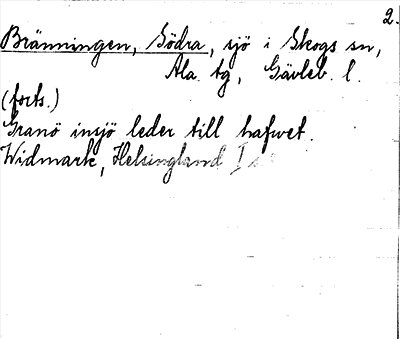 2.
Bränningen, Södra, sjö i Skogs sn,
Ala tg, Gävleb. l.
(forts.)
Granö insjö leder till hafwet.
Widmark, Helsingland I